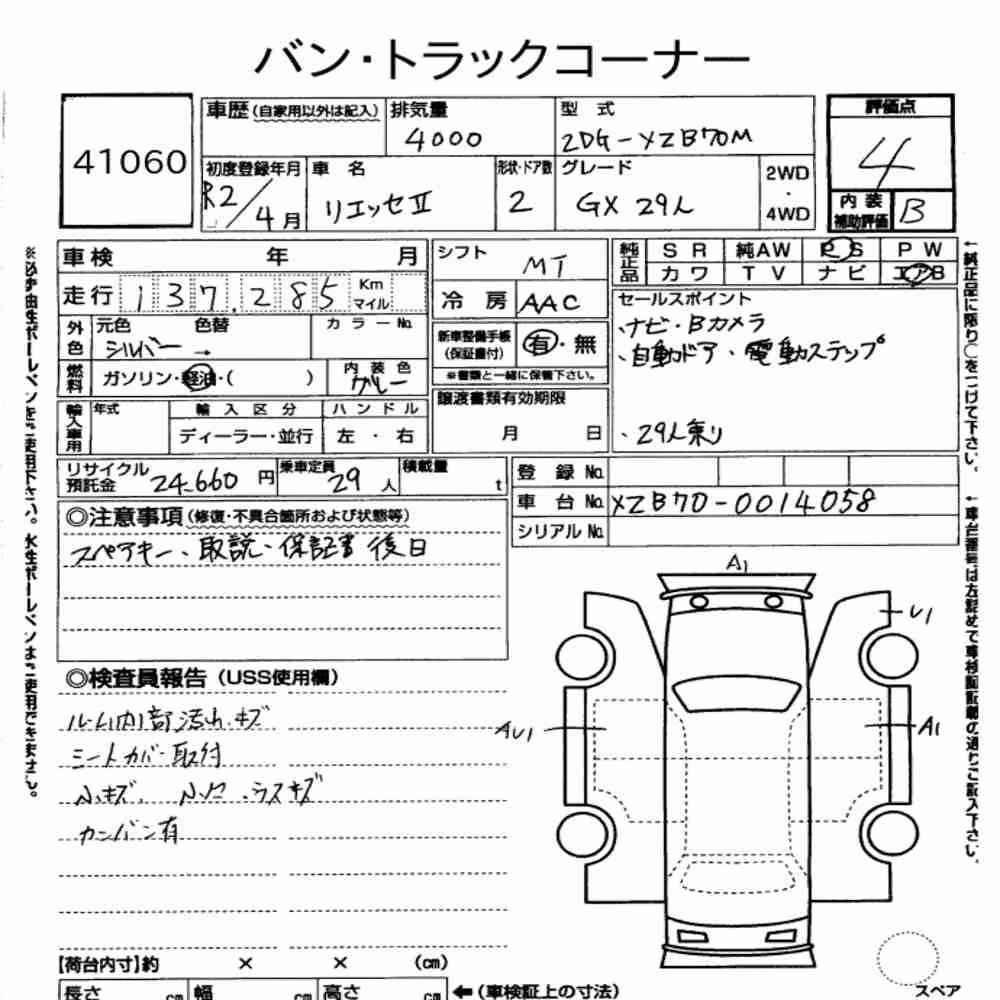 バン・トラックコーナー
41060
車歴 (自家用以外は記入) 排気量 型式
4000 2DG-XZB70M
評価点
4
初度登録年月 車名 形状・ドア数 グレード
R2/4月 リエッセⅡ 2 GX 29人
2WD
・
4WD
内装
補助評価 B
車検 年 月
走行 137,285 Km
マイル
外色 元色 色替 カラーNo.
シルバー →
燃料 ガソリン・軽油・( ) 内装色
グレー
輸入車用 年式 輸入区分 ハンドル
ディーラー・並行 左・右
シフト MT
冷房 AAC
新車整備手帳
(保証書付) 有・無
※書類と一緒に保管下さい。
譲渡書類有効期限
月 日
純正品 SR 純AW PS PW
カワ TV ナビ エアB
セールスポイント
・ナビ・Bカメラ
・自動ドア・電動ステップ
・29人乗り
リサイクル
預託金 24,660円 乗車定員 29人 積載量 t
登録No.
車台No. XZB70-0014058
シリアルNo.
◎注意事項 (修復・不具合箇所および状態等)
スペアキー、取説・保証書後日
◎検査員報告 (USS使用欄)
ルーム内部汚れ・キズ
シートカバー取付
小キズ、小凹、ラスキズ
カンバン有
A1
U1
AU1
A1
【荷台内寸】約 × × (cm)
長さ cm 幅 cm 高さ cm ←(車検証上の寸法)
スペア
※必ず油性ボールペンをご使用下さい。水性ボールペンはご使用できません。
←純正品に限り○をつけて下さい。
←車台番号は左詰めで車検証記載の通りご記入下さい。